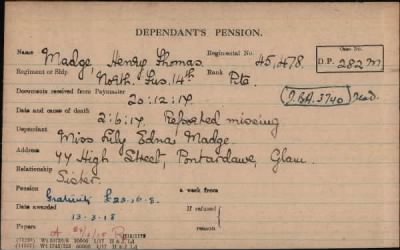 DEPENDANT'S PENSION.
Name Madge, Henry Thomas. Regimental No. 45,478. Case No.
Regiment or Ship North. Fus. 14th Rank Pte. D.P. 282 M
Documents received from Paymaster 20:12:17. (J.BA.3740)
Date and cause of death 2:6:17. Reported missing
Dependant Miss Lily Edna Madge.
Address 44 High Street, Pontardawe, Glam.
Relationship Sister.
Pension Gratuity £23.10.8. a week from
Date awarded 13-3-18 If refused
Papers reason of